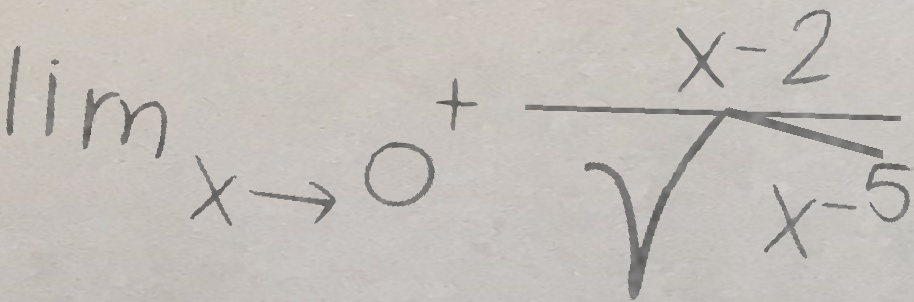 lim x→0⁺ x-2 / √x-5